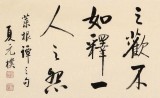 之歡不
如釋一
人之怨
菜根譚之句
夏元